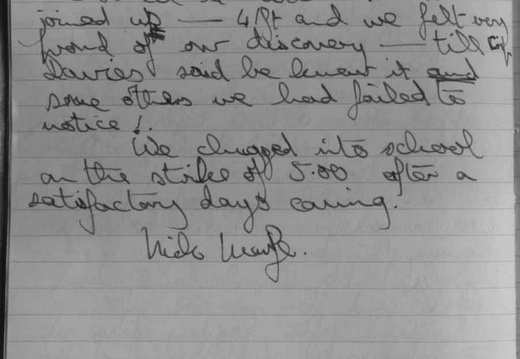 joined up — 4 ft and we felt very
proud of our discovery — till
Davies said he knew it and
some others we had failed to
notice!
We chugged into school
on the strike of 5.00 after a
satisfactory days caving.
Nick